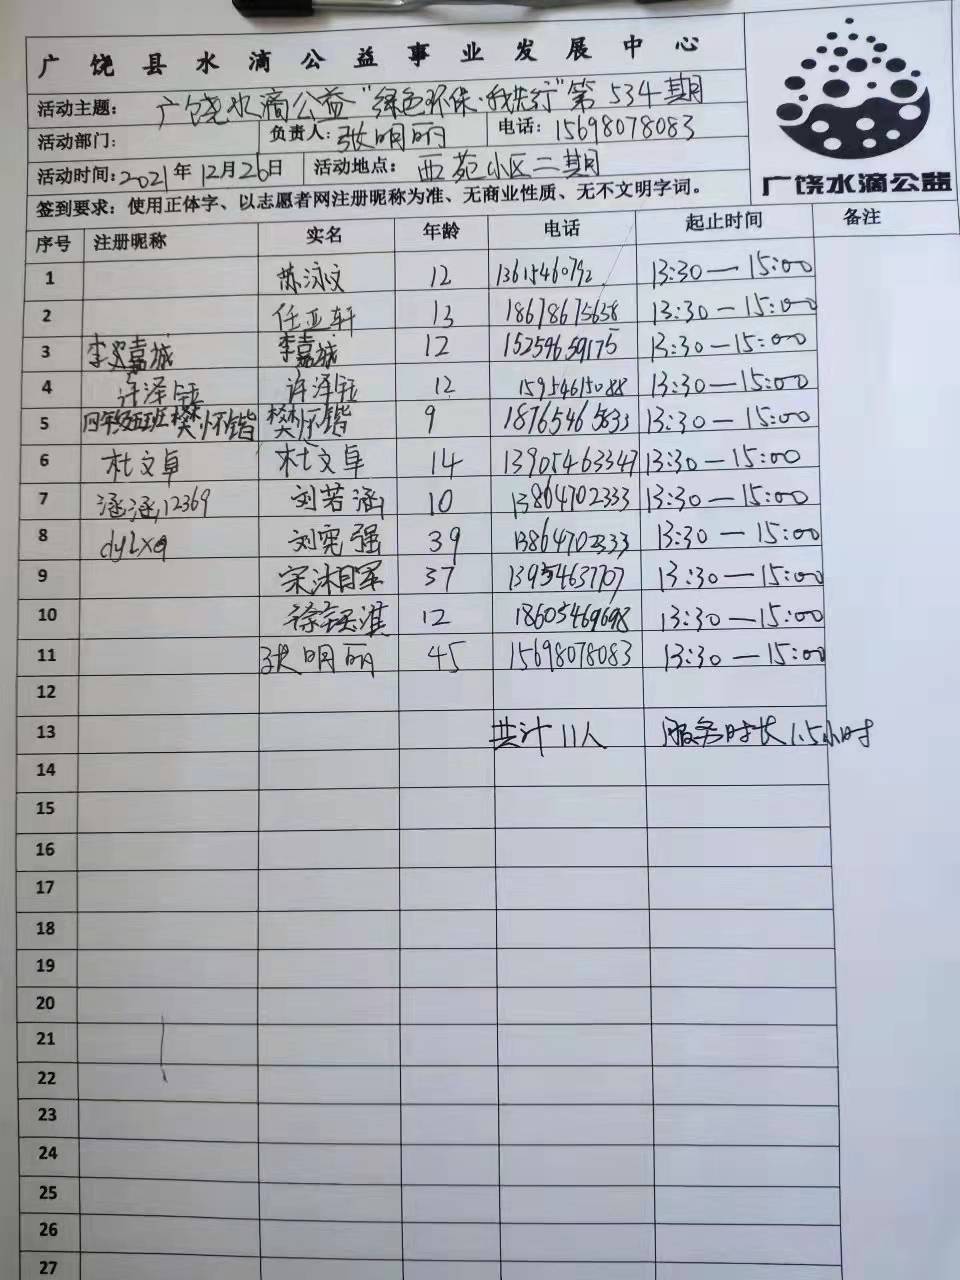 广饶县水滴公益事业发展中心
活动主题: 广饶水滴公益“绿色环保·我先行”第534期
活动部门: 负责人: 张明丽 电话: 15698078083
活动时间: 2021年12月26日 活动地点: 西苑小区二期
签到要求: 使用正体字、以志愿者网注册昵称为准、无商业性质、无不文明字词。
广饶水滴公益
序号 注册昵称 实名 年龄 电话 起止时间 备注
1 苏泳文 12 13615460792 13:30—15:00
2 任亚轩 13 18678675638 13:30—15:00
3 李嘉城 12 15259659175 13:30—15:00
4 许泽钰 许泽钰 12 15954615088 13:30—15:00
5 樊怀锴 樊怀锴 9 18765465833 13:30—15:00
6 杜文卓 杜文卓 14 13905463347 13:30—15:00
7 涵涵12369 刘若涵 10 13864702333 13:30—15:00
8 dyLxq 刘宪强 39 13864702333 13:30—15:00
9 37 13954637707 13:30—15:00
10 12 18605469698 13:30—15:00
11 张明丽 45 15698078083 13:30—15:00
12
13 共计11人 服务时长1.5小时
14
15
16
17
18
19
20
21
22
23
24
25
26
27